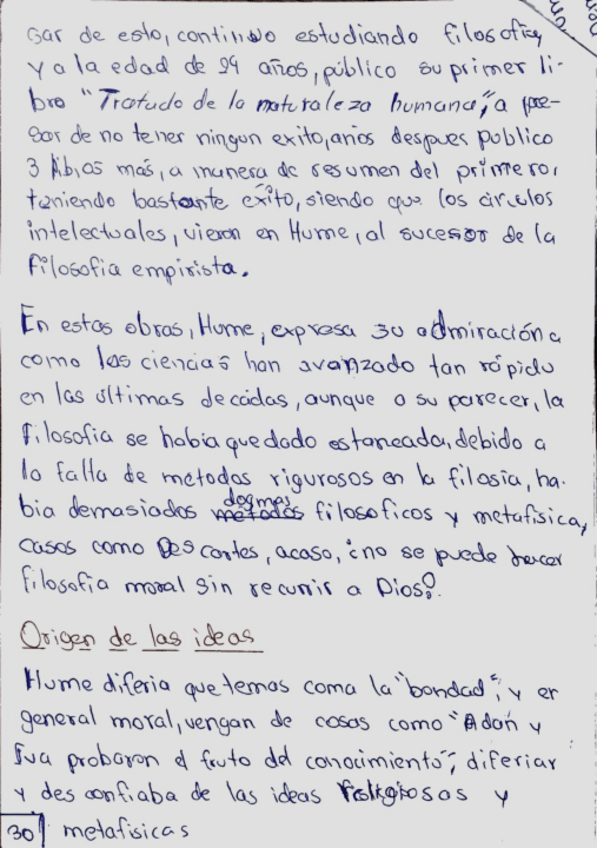 sar de esto, continuo estudiando filosofia,
y a la edad de 29 años, público su primer li-
bro "Tratado de la naturaleza humana", a pe-
sar de no tener ningun exito, años despues publico
3 libros más, a manera de resumen del primero,
teniendo bastante éxito, siendo que los circulos
intelectuales, vieron en Hume, al sucesor de la
filosofia empirista.
En estas obras, Hume, expresa su admiración a
como las ciencias han avanzado tan rápido
en las últimas decadas, aunque a su parecer, la
filosofia se habia quedado estancada, debido a
la falta de metodos rigurosos en la filosia, ha-
bia demasiados dogmas filosoficos y metafisica,
casos como Descartes, acaso, ¿no se puede hacer
filosofia moral sin recurrir a Dios?.
Origen de las ideas
Hume diferia que temas como la "bondad", y en
general moral, vengan de cosas como "Adán y
Eva probaron el fruto del conocimiento", diferiar
y desconfiaba de las ideas religiosas y
30 metafisicas